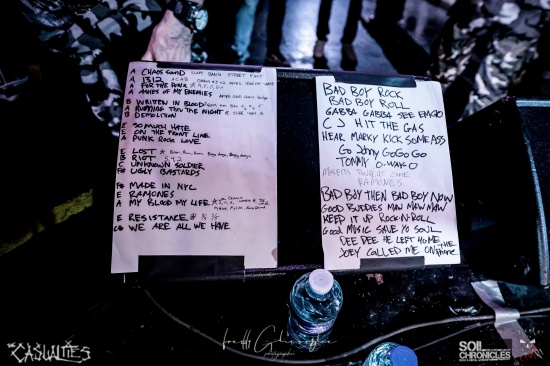 A CHAOS SOUND SLAM DANCE STREET FEET
A 1312
A FOR THE PUNX
A ASHES OF MY ENEMIES
B WRITTEN IN BLOOD
RUNNING THRU THE NIGHT
B DEMOLITION
E SO MUCH HATE
E ON THE FRONT LINE
A PUNK ROCK LOVE
E LOST
B RIOT
C UNKNOWN SOLDIER
F# UGLY BASTARDS
F# MADE IN NYC
E RAMONES
A MY BLOOD MY LIFE
E RESISTANCE
WE ARE ALL WE HAVE
BAD BOY ROCK
BAD BOY ROLL
GABBA GABBA SEE
C J HIT THE GAS
HEAR MARKY KICK SOME ASS
GO JOHNY GO GO GO
TOMMY O-WAY-O
MISFITS TWILIGHT ZONE
RAMONES
BAD BOY THEN BAD BOY NOW
GOOD BUDDIES MAW MAW MAW
KEEP IT UP ROCK-N-ROLL
GOOD MUSIC SAVE YO SOUL
DEE DEE HE LEFT HOME
JOEY CALLED ME ON THE PHONE
THE CASUALTIES
SOII
CHRONICLES